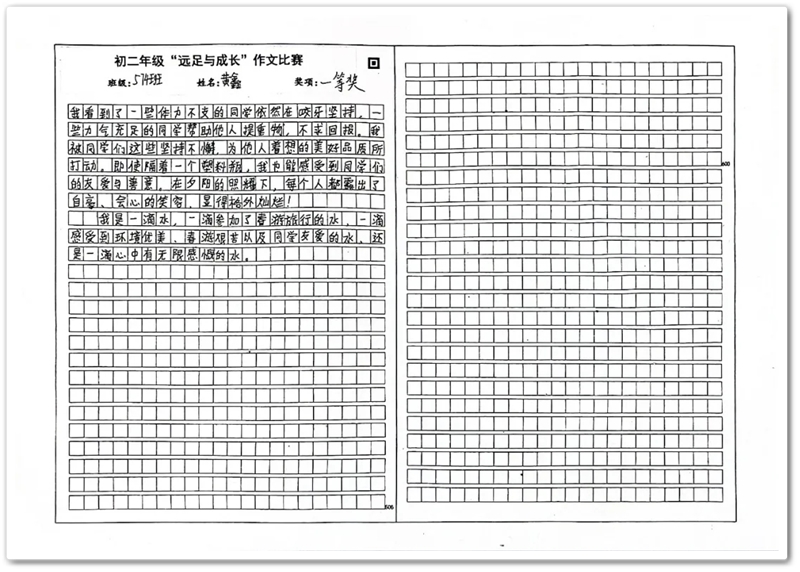 初二年级“远足与成长”作文比赛
班级：514班 姓名：黄鑫 奖项：一等奖
我看到了一些体力不支的同学依然在咬牙坚持，一
些力气充足的同学帮助他人提重物，不求回报。我
被同学们这些坚持不懈，为他人着想的美好品质所
打动。即使隔着一个塑料瓶，我也能感受到同学们
的友爱与善意。在夕阳的照耀下，每个人都露出了
自豪、会心的笑容，显得格外灿烂！
我是一滴水，一滴参加了春游旅行的水，一滴
感受到环境优美、春游艰苦以及同学友爱的水，还
是一滴心中有无限感慨的水。
600